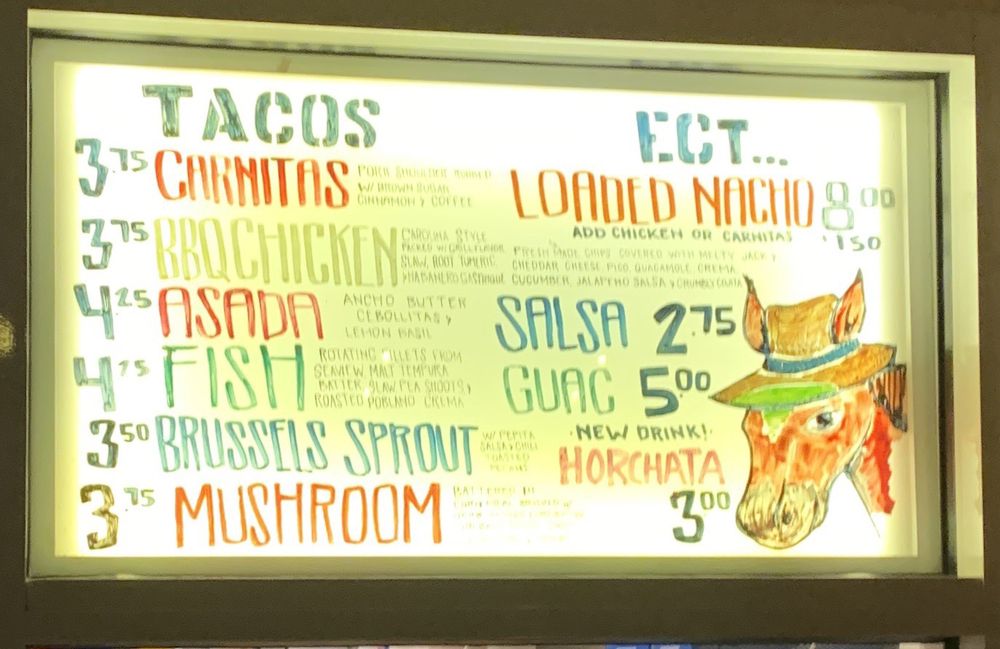 TACOS
3.75 CARNITAS
PORK SHOULDER RUBBED
W/ BROWN SUGAR
CINNAMON y COFFEE
3.75 BBQ CHICKEN
CAROLINA STYLE
PACKED W/ GRILL FLAVOR
SLAW, ROOT TUMERIC
y HABANERO GASTRIQUE
4.25 ASADA
ANCHO BUTTER
CEBOLLITAS y
LEMON BASIL
4.75 FISH
ROTATING FILLETS FROM
SEAVIEW, MALT TEMPURA
BATTER, SLAW PEA SHOOTS y
ROASTED POBLANO CREMA
3.50 BRUSSELS SPROUT
W/ PEPITA
SALSA y CHILI
TOASTED
PECANS
3.75 MUSHROOM
BATTERED IN
ECT...
LOADED NACHO 8.00
ADD CHICKEN OR CARNITAS 1.50
FRESH MADE CHIPS COVERED WITH MELTY JACK y
CHEDDAR CHEESE, PICO, GUACAMOLE, CREMA
CUCUMBER, JALAPEÑO SALSA y CRUMBLY COTIJA
SALSA 2.75
GUAC 5.00
·NEW DRINK!·
HORCHATA
3.00